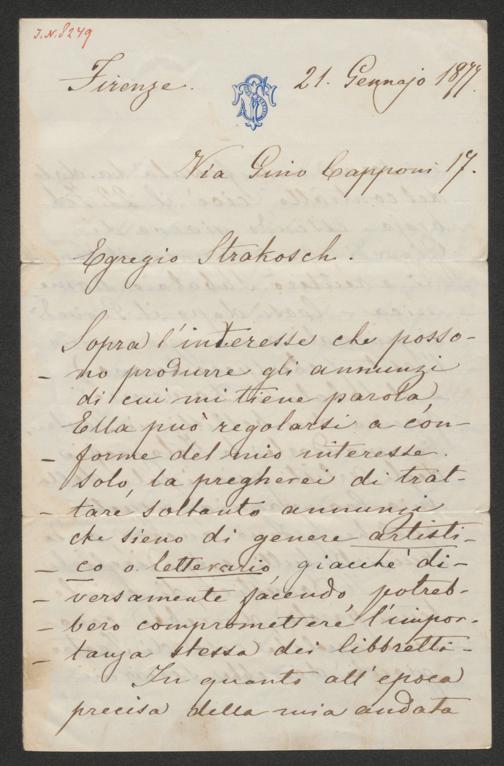 I.N. 8249
Firenze. 21. Gennajo 1877.
Via Gino Capponi 17.
Egregio Strakosch.
Sopra l'interesse che posso-
- no produrre gli annunzi
di cui mi tiene parola,
Ella può regolarsi a con-
- forme del mio interesse.
Solo, la pregherei di trat-
- tare soltanto annunzi
che sieno di genere artisti-
- co o letterario giacchè di-
- versamente facendo potreb-
- bero comprometteré l'impor-
- tanza stessa dei libbretti-
In quanto all'epoca
precisa della mia andata